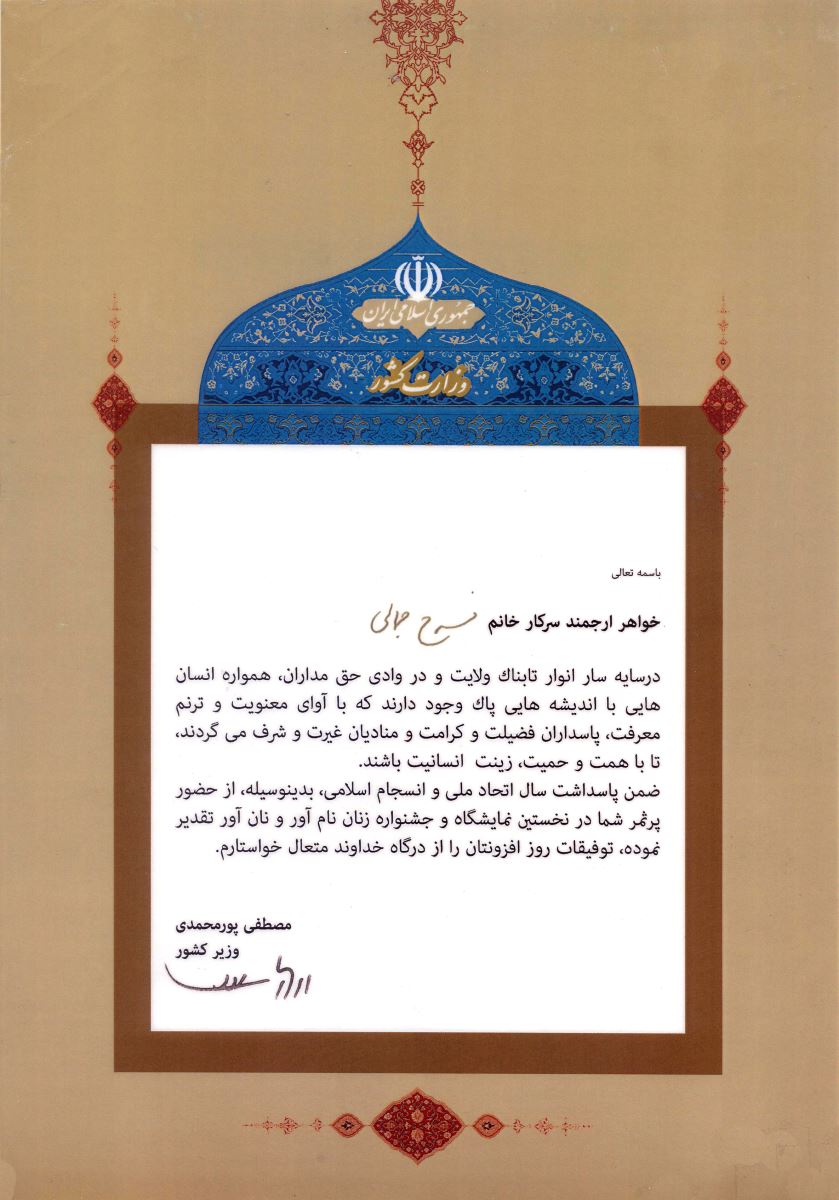 جمهوری اسلامی ایران
وزارت کشور
باسمه تعالی
خواهر ارجمند سرکار خانم فرح جمالی
درسایه سار انوار تابناك ولایت و در وادی حق مداران، همواره انسان
هایی با اندیشه هایی پاك وجود دارند که با آوای معنویت و ترنم
معرفت، پاسداران فضیلت و کرامت و منادیان غیرت و شرف می گردند،
تا با همت و حمیت، زینت انسانیت باشند.
ضمن پاسداشت سال اتحاد ملی و انسجام اسلامی، بدینوسیله، از حضور
پرثمر شما در نخستین نمایشگاه و جشنواره زنان نام آور و نان آور تقدیر
نموده، توفیقات روز افزونتان را از درگاه خداوند متعال خواستارم.
مصطفی پورمحمدی
وزیر کشور